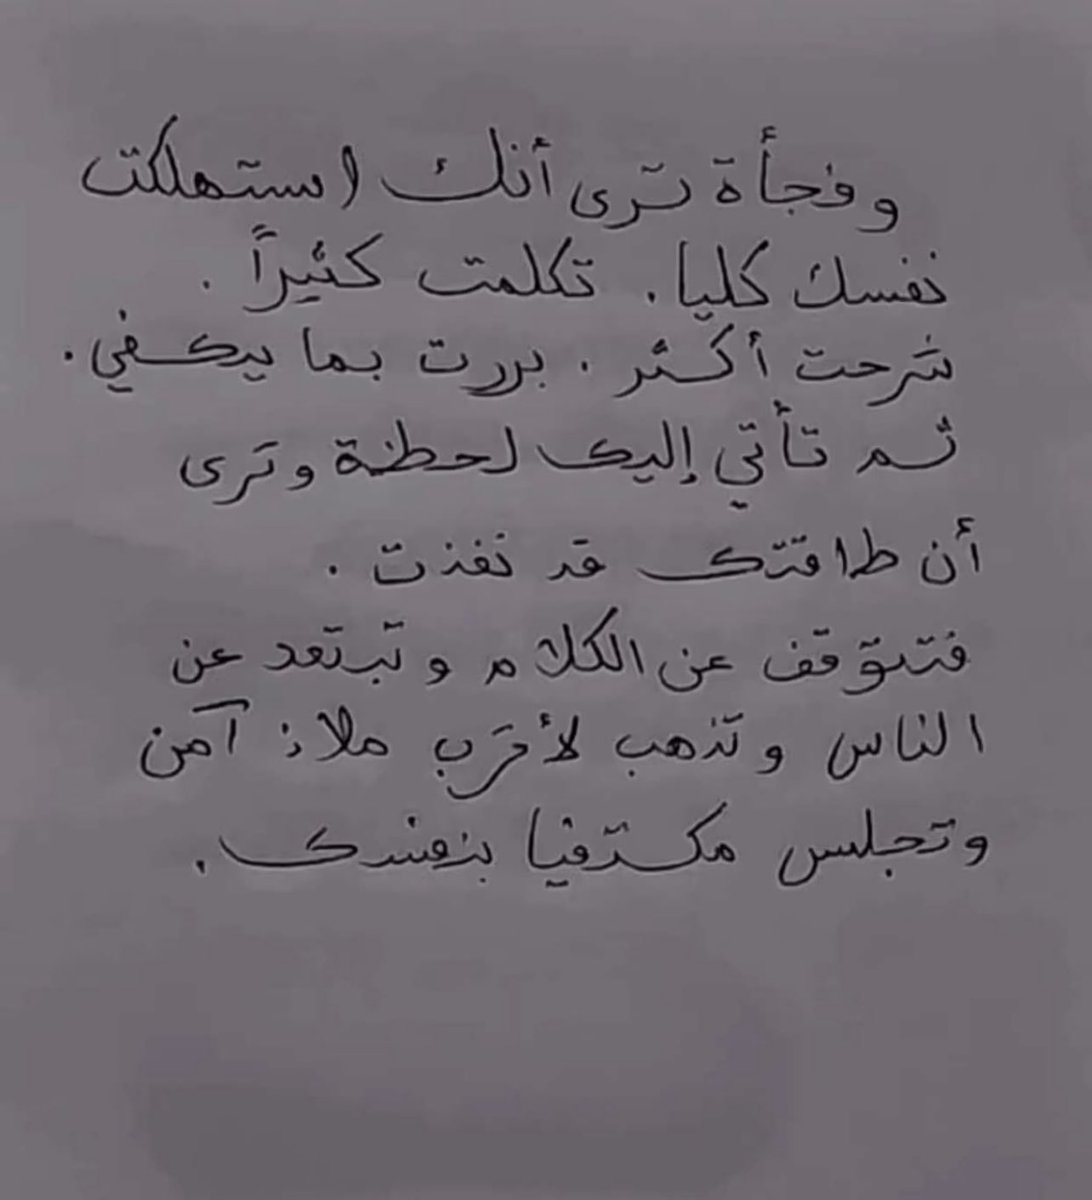 وفجأة ترى أنك استهلكت
نفسك كليا. تكلمت كثيراً.
شرحت أكثر. بررت بما يكفي.
ثم تأتي إليك لحظة وترى
أن طاقتك قد نفذت.
فتتوقف عن الكلام وتبتعد عن
الناس وتذهب لأقرب ملاذ آمن
وتجلس مكتفيا بنفسك.